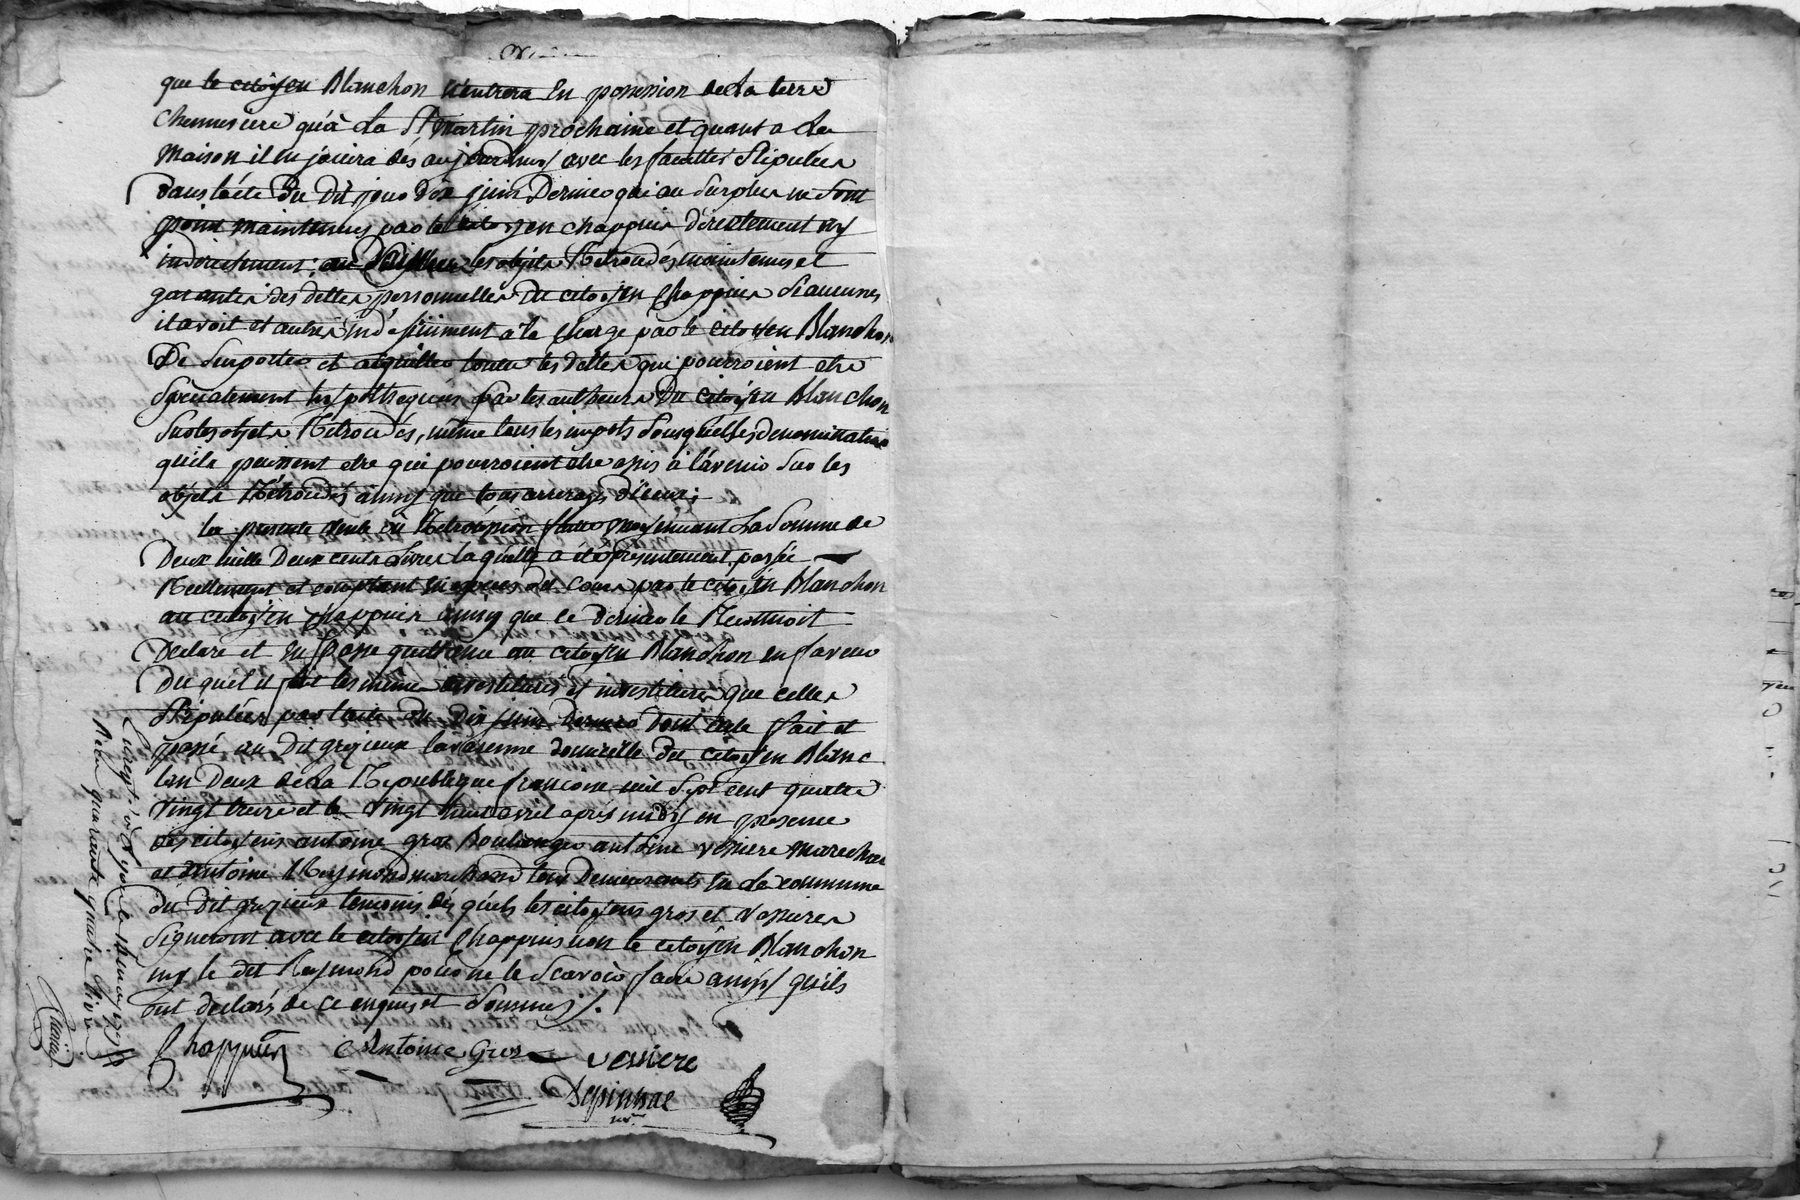 que le citoyen Blanchon n'entrera En possession de la terre
chenneviere qu'à La St martin prochaine et quant a La
maison il en jouira dés aujourdhuy avec les facultés stipulées
dans lacte Du Dit jour dix juin Dernier qui au surplus ne sont
point maintenus par le citoyen chappuis directement ny
indirectement; les objets Retrocedés maintenus et
garantis des dettes personnelles du citoyen Chappuis si aucunes
il avoit et autres indéfiniment a la Charge par le citoyen Blanchon
De suporter et acquitter toutes les dettes qui pourroient etre
Specialement hypothequées par les autheurs Du citoyen Blanchon
sur les objets Retrocedés, même tous les impots sousquelles denominations
quils puissent etre qui pourroient etre assis à l'avenir sur les
objets Retrocedés ainsy que tous arrerages d'iceux;
la presente vente ou Retrocession faite moyennant La somme de
Deux mille Deux cents Livres laquelle a été presentement payée
Réellement et comptant en especes de Cours par le citoyen Blanchon
au citoyen chappuis ainsy que ce dernier le Reconnoit
Declare et en passe quittance au citoyen Blanchon en faveur
Du quel il fait les mêmes devestitures et investitures que celles
Stipulées par lacte du dix juin dernier dont acte fait et
passé au Dit grezieux lavarenne domicille du citoyen Blanc
lan Deux de La Republique francoise mil sept cent quatre
vingt treize et le vingt huit avril après midy en presence
des citoyens antoine gros Boulanger antoine vessiere marechal
et Antoine Reymond marchand tous Demeurants En La commune
du dit grezieux temoins desquels les citoyens gros et vessiere
Signeront avec le citoyen Chappuis non le citoyen Blanchon
ny le dit Reymond pour ne le Scavoir faire ainsy qu'ils
ont declaré de ce enquis et sommés.
Chappuis Antoine Gros vessiere
Despinhac
nre
Enregistré
Reçu quarante quatre livres